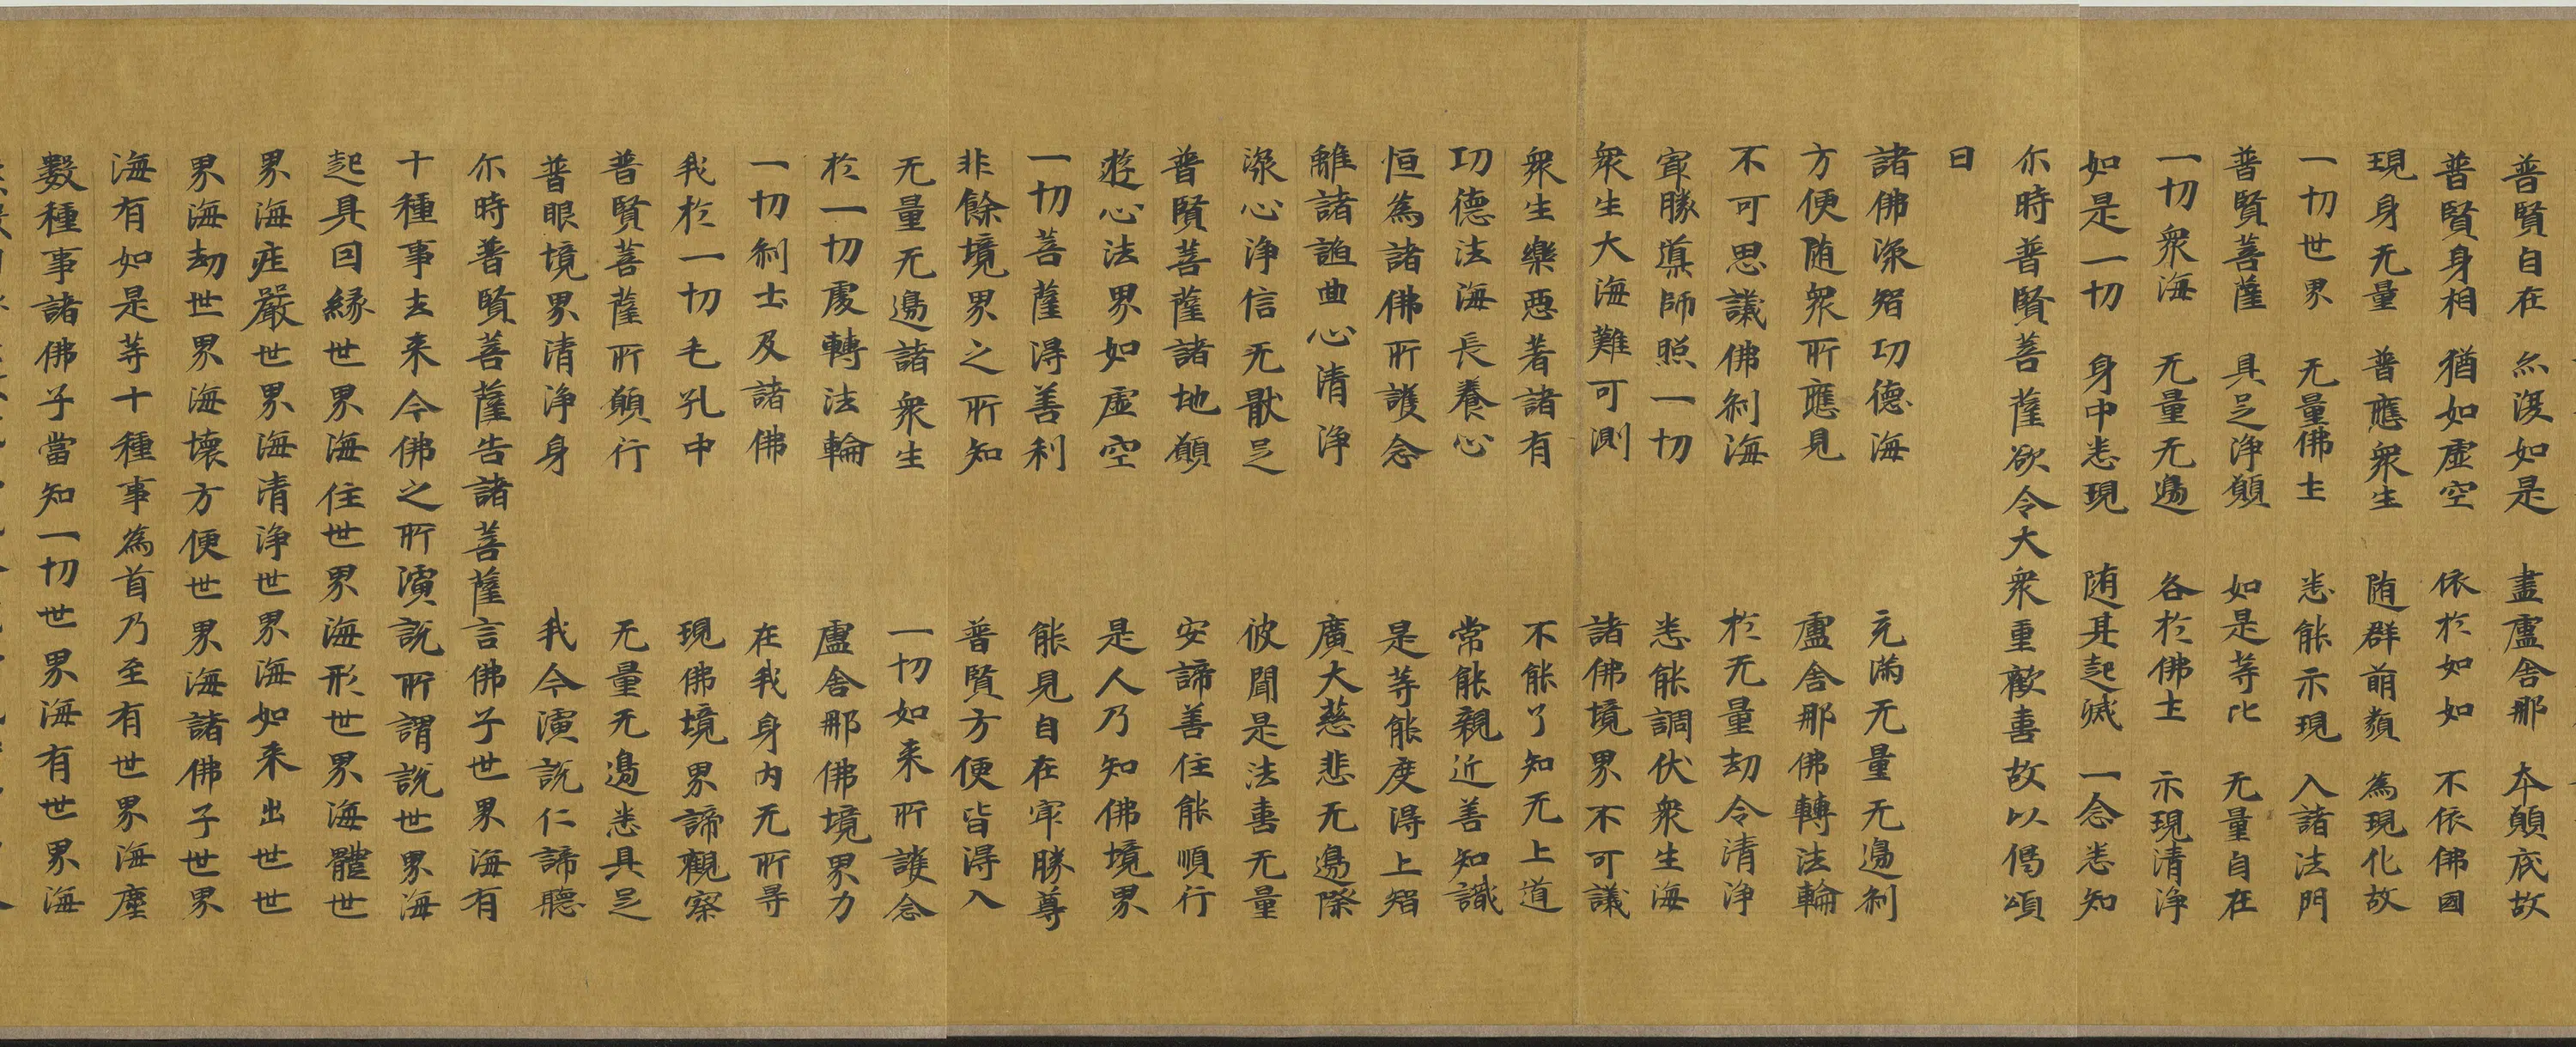 普賢自在 亦復如是 盡盧舍那 本願底故
普賢身相 猶如虛空 依於如如 不依佛國
現身无量 普應衆生 随群萌類 為現化故
一切世界 无量佛土 悉能示現 入諸法門
普賢菩薩 具足淨願 如是等比 无量自在
一切衆海 无量无邊 各於佛土 示現清淨
如是一切 身中悉現 随其起滅 一念悉知
尒時普賢菩薩欲令大衆重歡喜故以偈頌
曰
諸佛深智功德海 充滿无量无邊刹
方便随衆所應見 盧舍那佛轉法輪
不可思議佛刹海 於无量劫令清淨
㝡勝導師照一切 悉能調伏衆生海
衆生大海難可測 諸佛境界不可議
衆生樂惡著諸有 不能了知无上道
功德法海長養心 常能親近善知識
恒為諸佛所護念 是等能度得上智
離諸諂曲心清淨 廣大慈悲无邊際
深心淨信无厭足 彼聞是法喜无量
普賢菩薩諸地願 安諦善住能順行
遊心法界如虛空 是人乃知佛境界
一切菩薩得善利 能見自在㝡勝尊
非餘境界之所知 普賢方便皆得入
无量无邊諸衆生 一切如来所護念
於一切處轉法輪 盧舍那佛境界力
一切刹土及諸佛 在我身内无所㝵
我於一切毛孔中 現佛境界諦觀察
普賢菩薩所願行 无量无邊悉具足
普眼境界清淨身 我今演說仁諦聽
尒時普賢菩薩告諸菩薩言佛子世界海有
十種事去来今佛之所演說所謂說世界海
起具因緣世界海住世界海形世界海體世
界海疰嚴世界海清淨世界海如来出世世
界海劫世界海壞方便世界海諸佛子世界
海有如是等十種事為首乃至有世界海塵
數種事諸佛子當知一切世界海有世界海